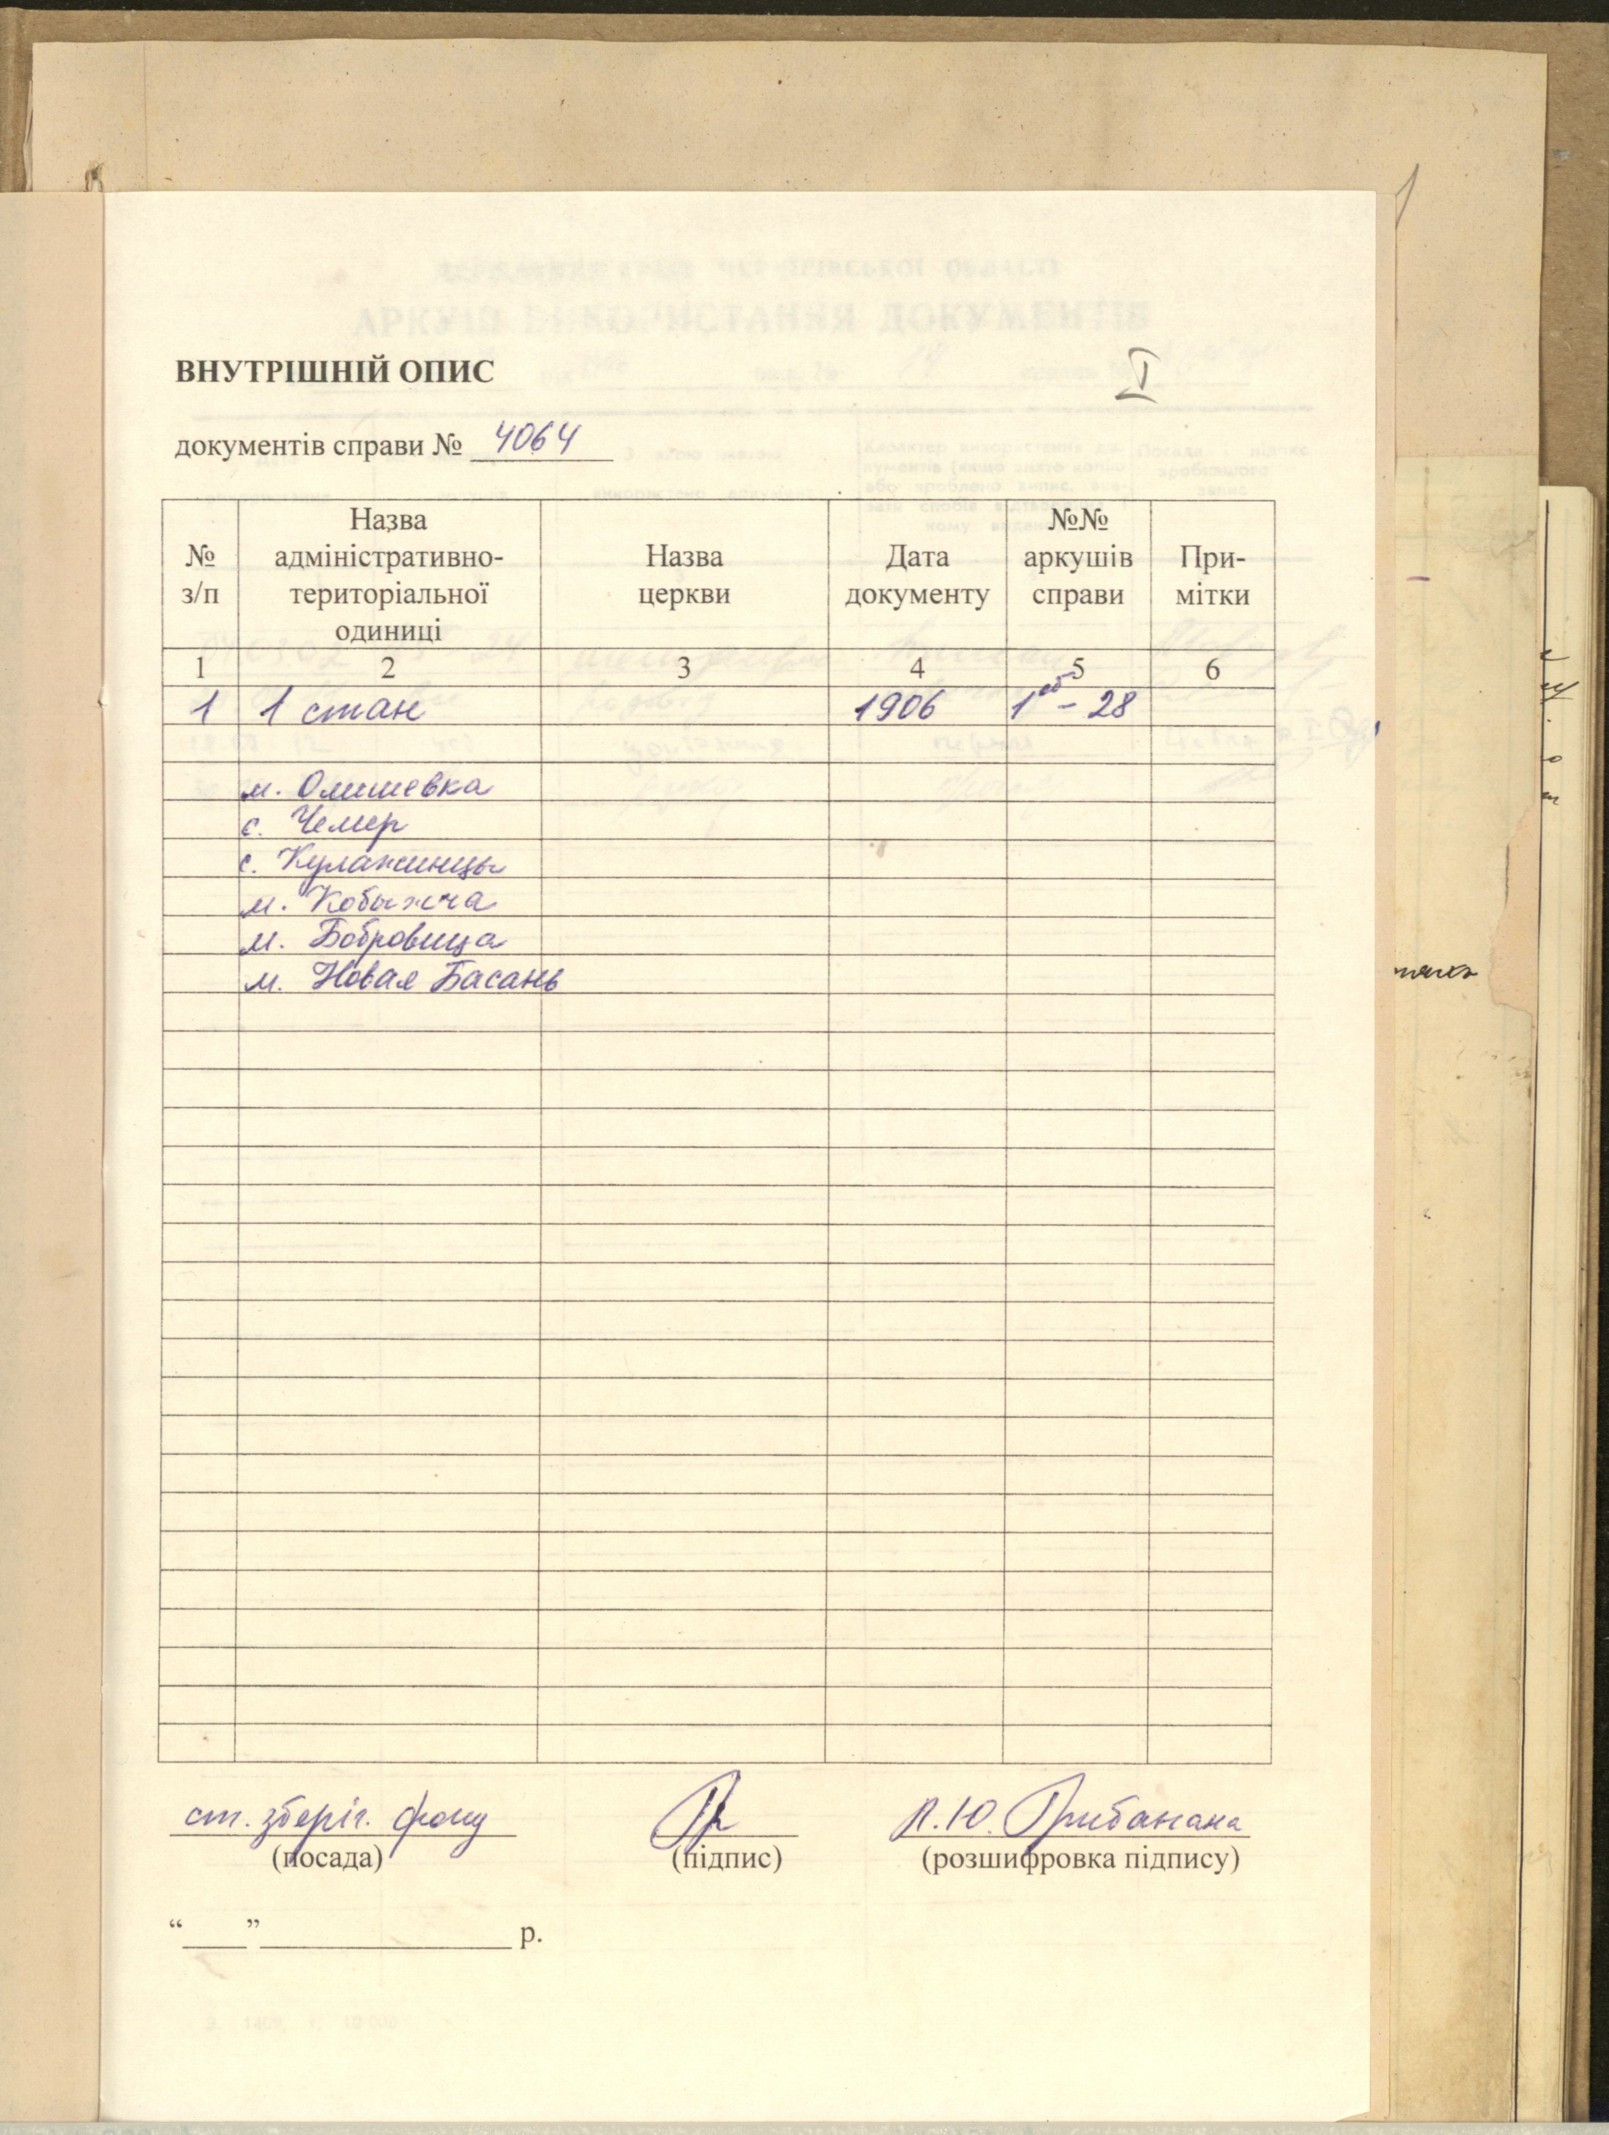 I
ВНУТРІШНІЙ ОПИС
документів справи № 4064
№ з/п | Назва адміністративно-територіальної одиниці | Назва церкви | Дата документу | №№ аркушів справи | При-мітки
1 | 2 | 3 | 4 | 5 | 6
1 | 1 стан | 1906 | 1об - 28
м. Олишевка
с. Чемер
с. Кулажинцы
м. Кобыжча
м. Бобровица
м. Новая Басань
ст. зберіг. фонду
(посада) (підпис) (розшифровка підпису)
“____”________________ р.